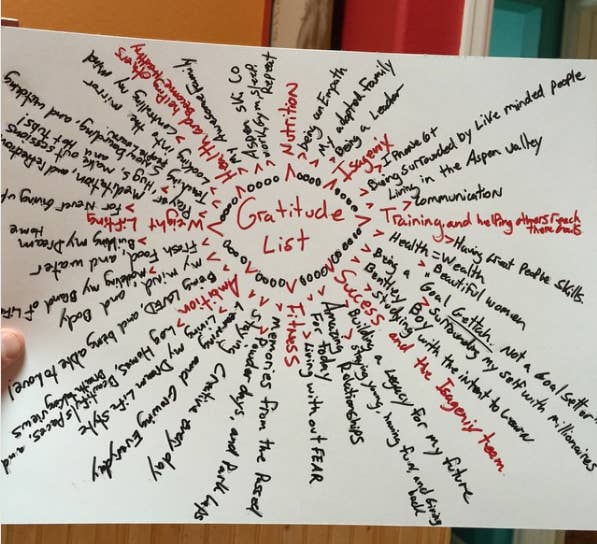 Gratitude
List
Nutrition
being an Empath
my adopted Family
Being a Leader
Isagenix
I Phone 6+
Being Surrounded by Live minded people
Living in the Aspen valley
Communication
Training and helping others reach
there Goals
Having Great People Skills
Health = Wealth
Beautiful women
Being a Goal Getter. Not a Goal setter
Surrounding my self with millionaires
Bentley Boy
Studying with the intent to Learn
Success and the Isagenix team
Building a Legacy for my future
Staying young, having fun, and Giving
back
Amazing Relationships
For today
Living with out FEAR
Fitness
memories from the Passed
powder days, and Park laps
Staying Creative every day
Learning and Growing Everyday
Living my Dream Life style
Log Homes,
Beautiful places, and
Breath taking views
Ambition
Being LOVED, and being able to love!
my mind, and Body
Building my Band of Life
Fresh Food, and water
Building my Dream
Home
Weight Lifting
For Never Giving up
Prayer, Meditation, and Reflection
Hugs, make out sessions
and Hot tubs!
Snow boarding, and
Looking into the mirror
Controlling my mind
Health and helping others
become healthy
My Awesome Family
Aspen SK CO
Repeat